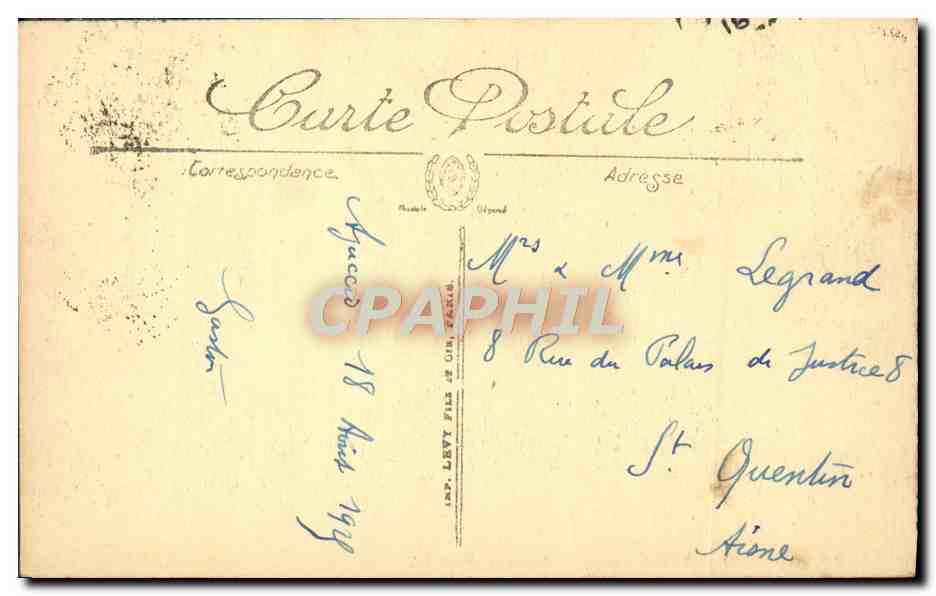 Carte Postale
Correspondance
Adresse
Modèle Déposé
Ajaccio 18 Août
Gaston
IMP. LEVY FILS ET CIE, PARIS.
Mrs & Mme Legrand
8 Rue du Palais de Justice 8
St Quentin
Aisne
CPAPHIL